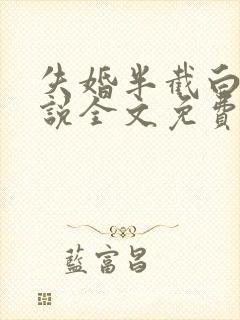 失婚半截白
說全文免費
藍富昌